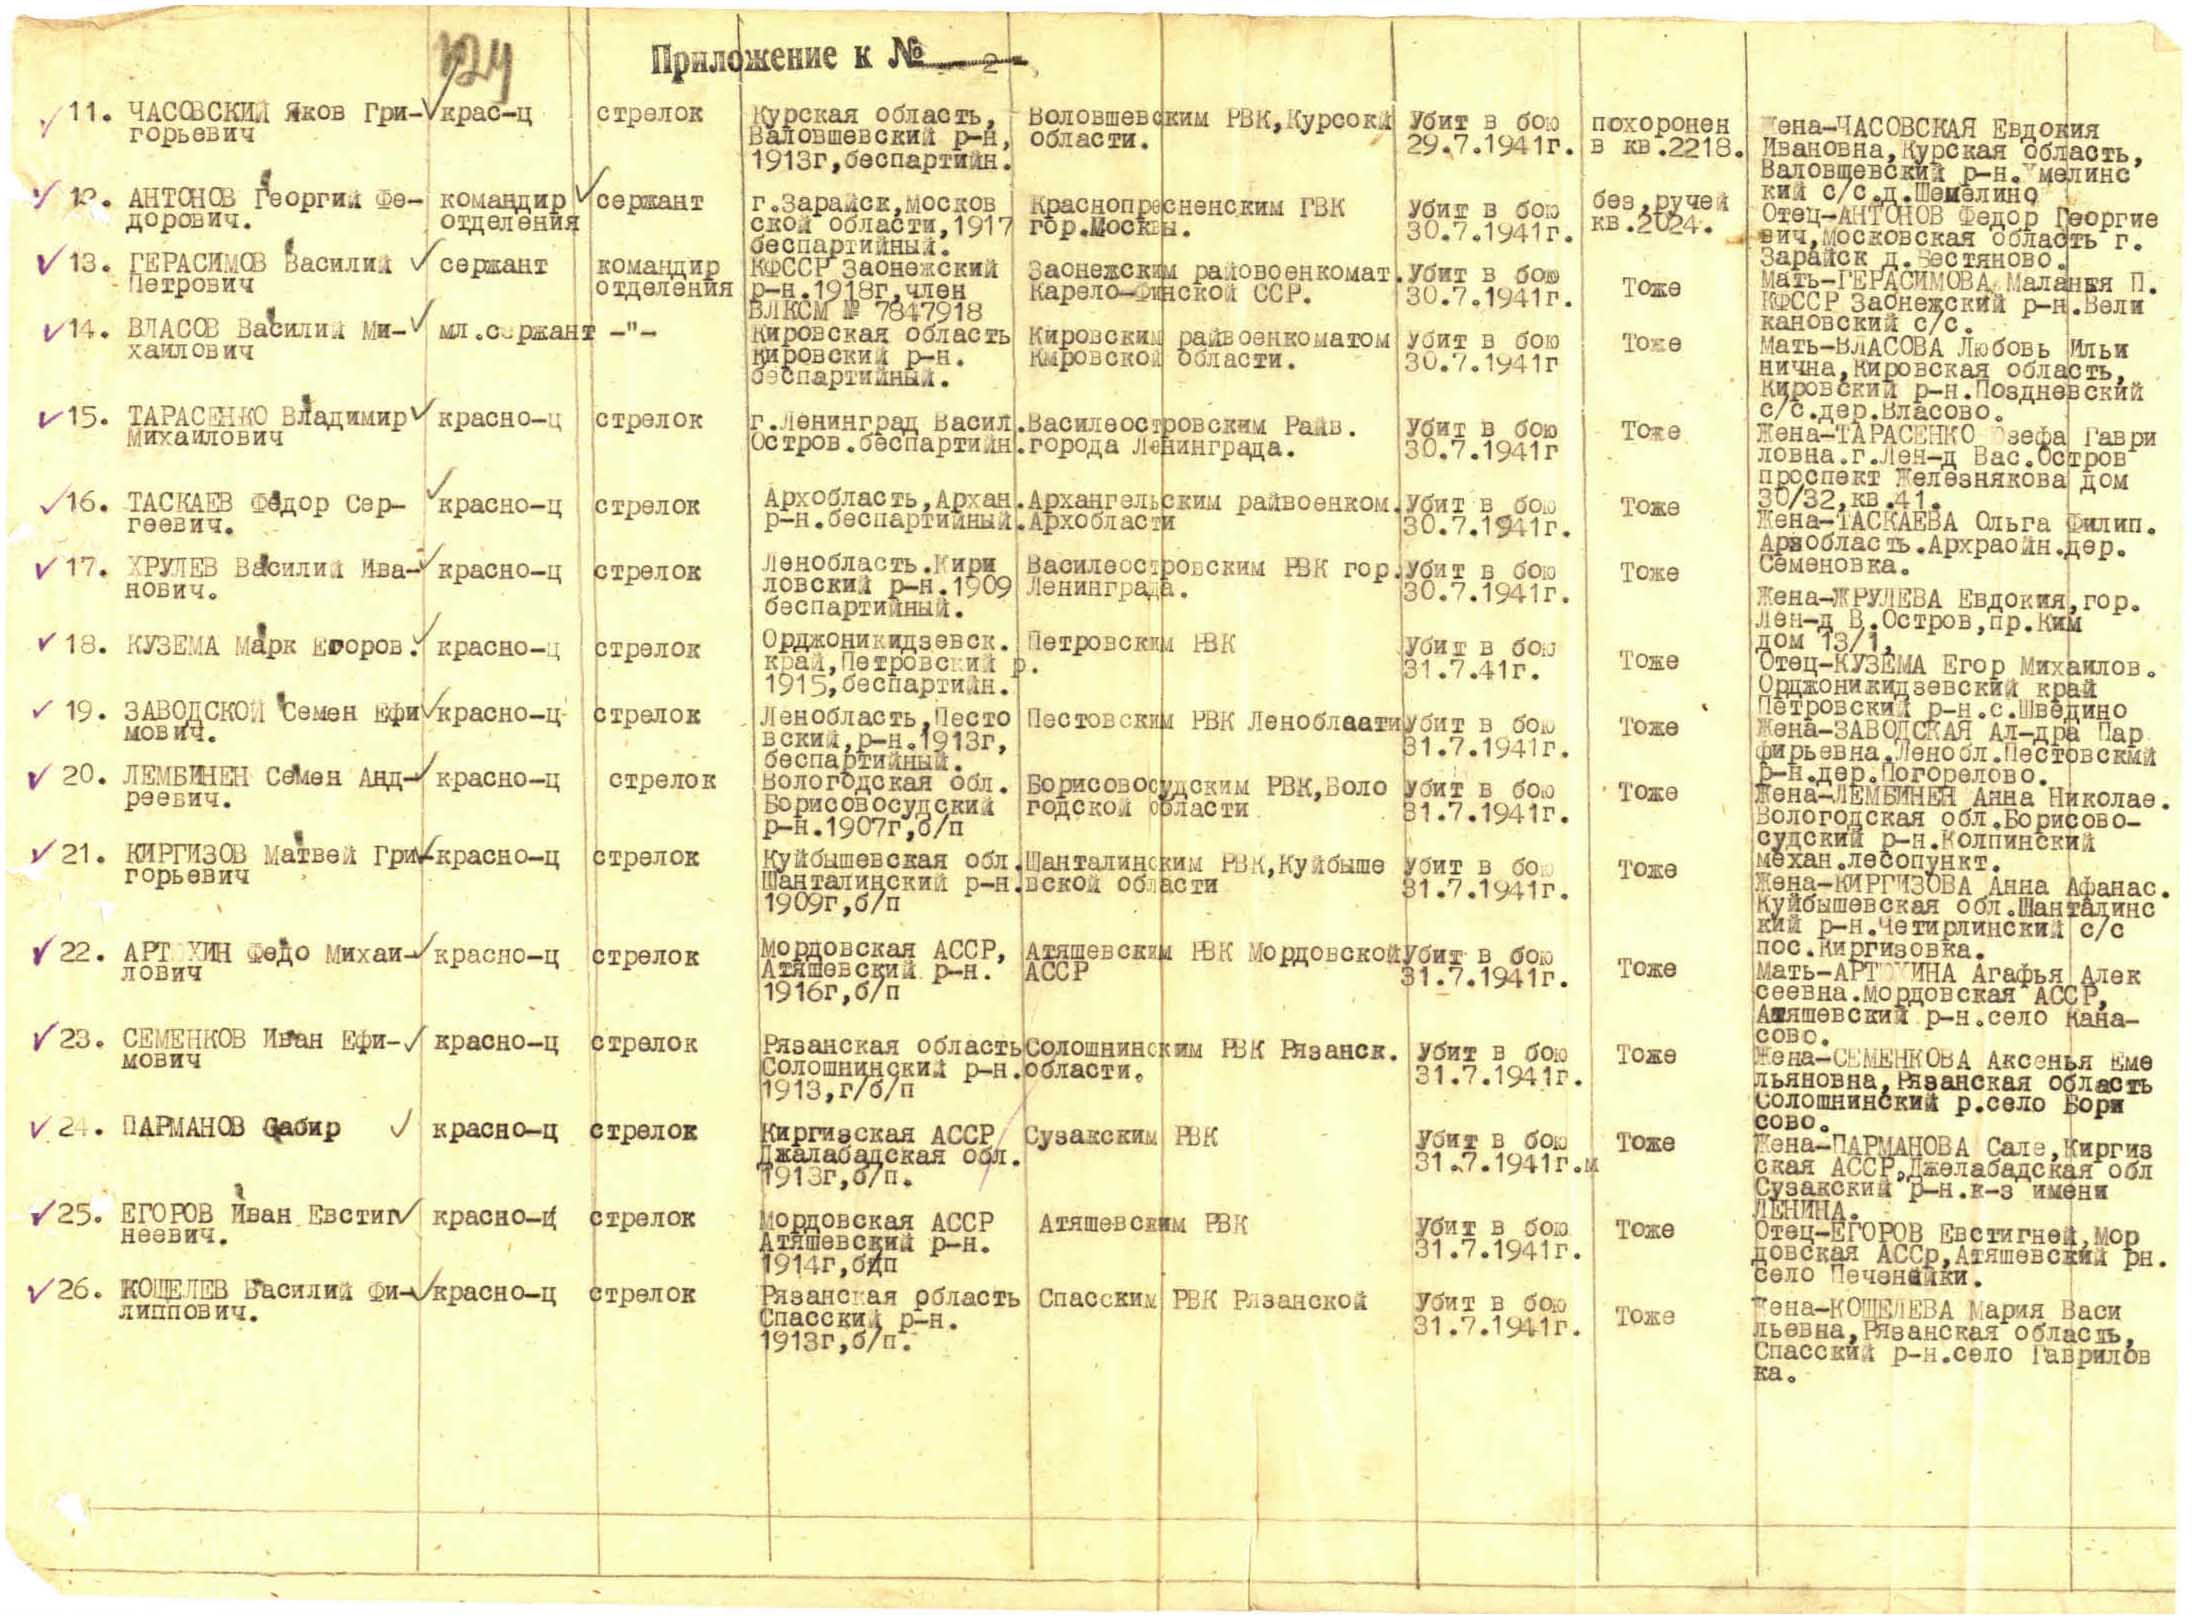 124
Приложение к № 2
11. ЧАСОВСКИЙ Яков Гри-
горьевич
крас-ц
стрелок
Курская область,
Валовшевский р-н,
1913г,беспартийн.
Воловшевским РВК,Курской
области.
Убит в бою
29.7.1941г.
похоронен
в кв.2218.
Жена-ЧАСОВСКАЯ Евдокия
Ивановна,Курская область,
Валовщевский р-н.
кий с/с.д.Шемелино
12. АНТОНОВ Георгий Фе-
дорович.
командир
отделения
сержант
г.Зарайск,Москов
ской области,1917
беспартийный.
Краснопресненским ГВК
гор.Москвы.
Убит в бою
30.7.1941г.
без.ручей
кв.2024.
Отец-АНТОНОВ Федор Георгие
вич,Московская область г.
Зарайск д.Бестяново.
13. ГЕРАСИМОВ Василий
Петрович
сержант
командир
отделения
КФССР Заонежский
р-н.1918г,член
ВЛКСМ № 7847918
Заонежским райовоенкомат.
Карело-Финской ССР.
Убит в бою
30.7.1941г.
Тоже
Мать-ГЕРАСИМОВА Маланья П.
КФССР Заонежский р-н.Вели
кановский с/с.
14. ВЛАСОВ Василий Ми-
хайлович
мл.сержант
-"-
Кировская область
Кировский р-н.
беспартийный.
Кировским райвоенкоматом
Кировской области.
Убит в бою
30.7.1941г
Тоже
Мать-ВЛАСОВА Любовь Ильи
нична,Кировская область,
Кировский р-н.Поздневский
с/с.дер.Власово.
15. ТАРАСЕНКО Владимир
Михайлович
красно-ц
стрелок
г.Ленинград Васил.
Остров.беспартийн.
Василеостровским Райв.
города Ленинграда.
Убит в бою
30.7.1941г
Тоже
Жена-ТАРАСЕНКО Гаври
ловна.г.Лен-д Вас.Остров
проспект Железнякова дом
30/32,кв.41.
16. ТАСКАЕВ Федор Сер-
геевич.
красно-ц
стрелок
Архобласть,Архан.
р-н.беспартийный.
Архангельским райвоенком.
Архобласти
Убит в бою
30.7.1941г.
Тоже
Жена-ТАСКАЕВА Ольга Филип.
Архобласть.Архраойн.дер.
Семеновка.
17. ХРУЛЕВ Василий Ива-
нович.
красно-ц
стрелок
Ленобласть.Кири
ловский р-н.1909
беспартийный.
Василеостровским РВК гор.
Ленинграда.
Убит в бою
30.7.1941г.
Тоже
Жена-ЖРУЛЕВА Евдокия,гор.
Лен-д В.Остров,пр.Ким
дом 13/1,
18. КУЗЕМА Марк Егоров.
красно-ц
стрелок
Орджоникидзевск.
край,Петровский р.
1915,беспартийн.
Петровским РВК
Убит в бою
31.7.41г.
Тоже
Отец-КУЗЕМА Егор Михайлов.
Орджоникидзевский край
Петровский р-н.с.Шведино
19. ЗАВОДСКОЙ Семен Ефи
мович.
красно-ц
стрелок
Ленобласть,Песто
вский,р-н.1913г,
беспартийный.
Пестовским РВК Леноблаати
Убит в бою
31.7.1941г.
Тоже
Жена-ЗАВОДСКАЯ Ал-дра Пар
фирьевна.Ленобл.Пестовский
р-н.дер.Погорелово.
20. ЛЕМБИНЕН Семен Анд-
реевич.
красно-ц
стрелок
Вологодская обл.
Борисовосудский
р-н.1907г,б/п
Борисовосудским РВК,Воло
годской области
Убит в бою
31.7.1941г.
Тоже
Жена-ЛЕМБИНЕН Анна Николае.
Вологодская обл.Борисово-
судский р-н.Колпинский
механ.лесопункт.
21. КИРГИЗОВ Матвей Гри-
горьевич
красно-ц
стрелок
Куйбышевская обл.
Шанталинский р-н.
1909г,б/п
Шанталинским РВК,Куйбыше
вской области
Убит в бою
31.7.1941г.
Тоже
Жена-КИРГИЗОВА Анна Афанас.
Куйбышевская обл.Шанталинс
кий р-н.Четирлинский с/с
пос.Киргизовка.
22. АРТЮХИН Федо Михаи-
лович
красно-ц
стрелок
Мордовская АССР,
Атяшевский р-н.
1916г,б/п
Атяшевским РВК Мордовской
АССР
Убит в бою
31.7.1941г.
Тоже
Мать-АРТЮХИНА Агафья Алек
сеевна.Мордовская АССР,
Атяшевский р-н.село Кана-
сово.
23. СЕМЕНКОВ Иван Ефи-
мович
красно-ц
стрелок
Рязанская область
Солошнинский р-н.
1913,г/б/п
Солошнинским РВК Рязанск.
области.
Убит в бою
31.7.1941г.
Тоже
Жена-СЕМЕНКОВА Аксенья Еме
льяновна,Рязанская область
Солошнинский р.село Бори
сово.
24. ПАРМАНОВ Сабир
красно-ц
стрелок
Киргизская АССР
Джалабадская обл.
1913г,б/п.
Сузакским РВК
Убит в бою
31.7.1941г.м
Тоже
Жена-ПАРМАНОВА Сале,Киргиз
ская АССР,Джелабадская обл
Сузакский р-н.к-з имени
ЛЕНИНА.
25. ЕГОРОВ Иван Евстиг
неевич.
красно-ц
стрелок
Мордовская АССР
Атяшевский р-н.
1914г,бдп
Атяшевским РВК
Убит в бою
31.7.1941г.
Тоже
Отец-ЕГОРОВ Евстигней,Мор
довская АССр,Атяшевский рн.
село Печенайки.
26. КОШЕЛЕВ Василий Фи-
липпович.
красно-ц
стрелок
Рязанская область
Спасский р-н.
1913г,б/п.
Спасским РВК Рязанской
Убит в бою
31.7.1941г.
Тоже
Жена-КОШЕЛЕВА Мария Васи
льевна,Рязанская область,
Спасский р-н.село Гаврилов
ка.